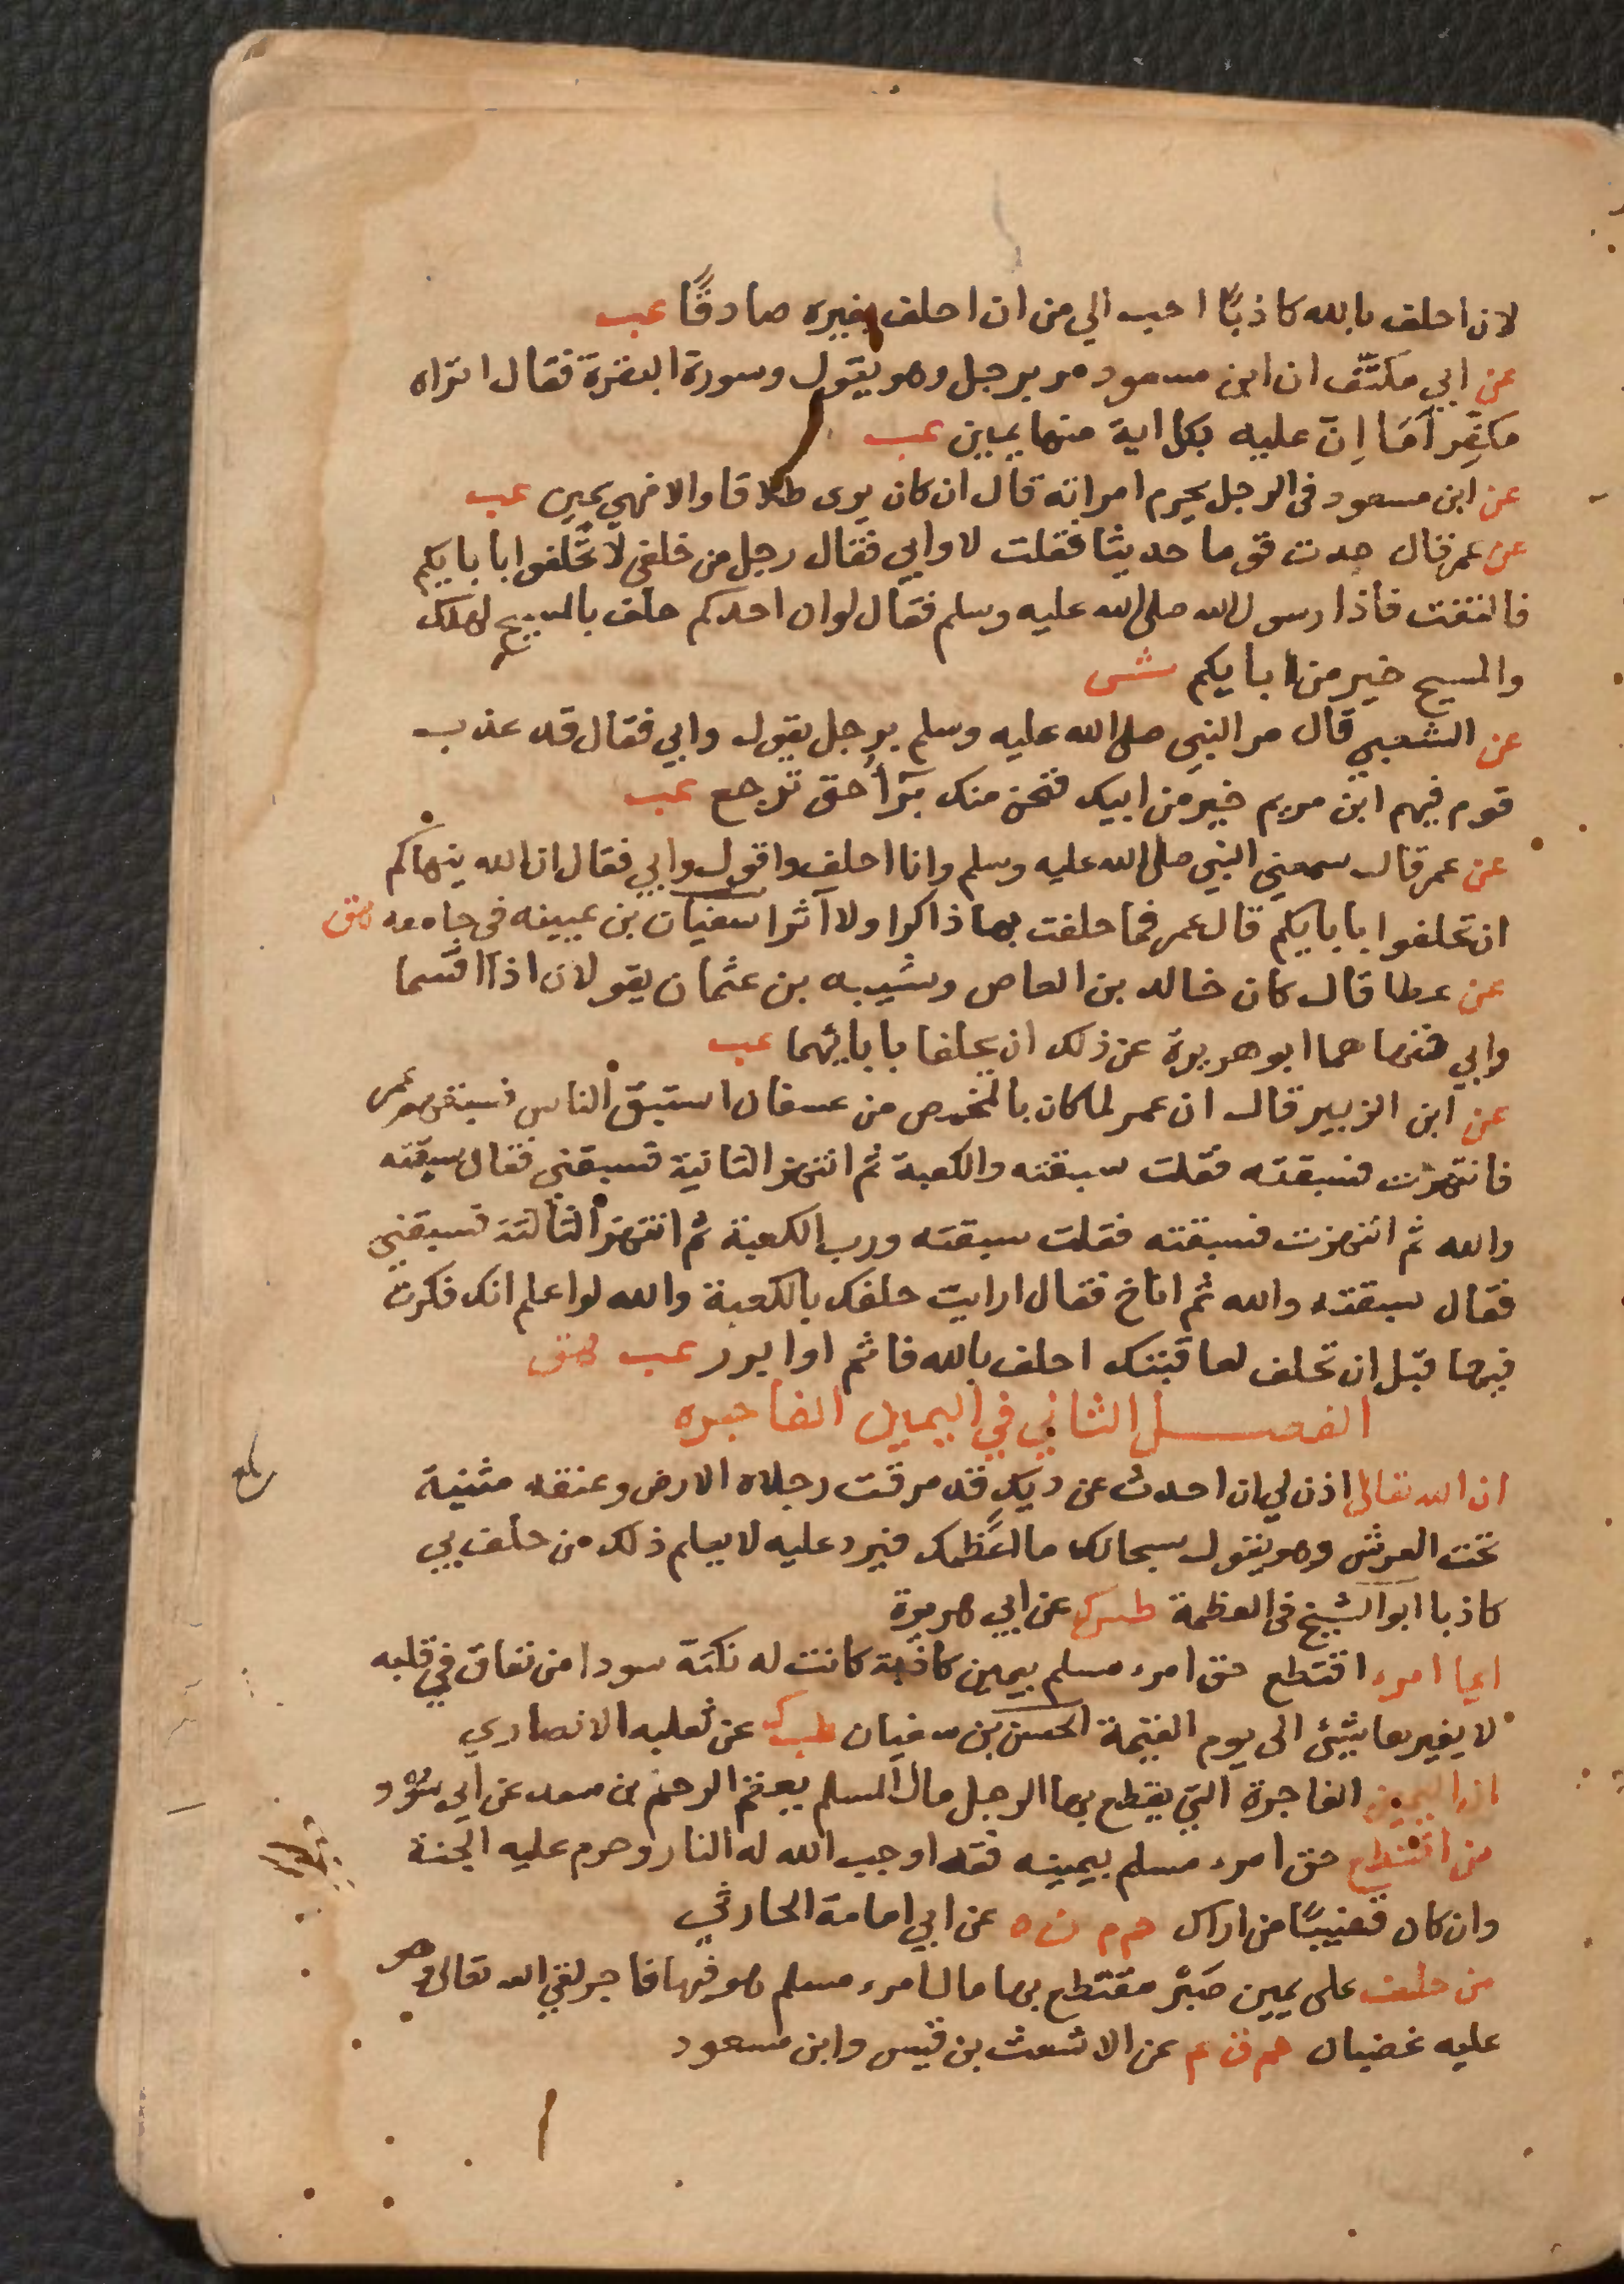 لان احلف بالله كاذبًا احب الي من ان احلف بغيره صادقًا عب
عن ابي مكنّف ان ابن مسعود مر برجل وهو يقول وسورة البقرة فقال اتراه
مكفِّر اَمَا اِنّ عليه بكل اية منها يمين عب
عن ابن مسعود فى الرجل يحرم امراته قال ان كان يرى طلاقا والا فهي يمين عب
عن عمر قال حدث قوما حديثا فقلت لا وابي فقال رجل من خلفى لا تحلفوا بابايكم
فالتفت فاذا رسول الله صلى الله عليه وسلم فقال لو ان احدكم حلف بالمسيح لهلك
والمسيح خير من ابايكم ش
عن الشعبي قال مر النبي صلى الله عليه وسلم برجل يقول وابي فقال قد عذب
قوم فيهم ابن مريم خير من ابيك فنحن منك برٓأُ حتى ترجع عب
عن عمر قال سمعني النبي صلى الله عليه وسلم وانا احلف واقول وابي فقال ان الله ينهاكم
ان تحلفوا بابايكم قال عمر فما حلفت بها ذاكرا ولا آثرا سفيان بن عيينه فى جامعه هق
عن عطا قال كان خالد بن العاص وشيبه بن عثمان يقولان اذا اقسما
وابي فنهاهما ابو هريرة عن ذلك ان يحلفا بابائهما عب
عن ابن الزبير قال ان عمر لما كان بالمخمص من عسفان استبق الناس فسبقهم عمر
فانتهزت فسبقته فقلت سبقته والكعبة ثم انتهز الثانية فسبقني فقال سبقته
والله ثم انتهزت فسبقته فقلت سبقته ورب الكعبة ثم انتهز الثالثة فسبقني
فقال سبقته والله ثم اناخ فقال ارايت حلفك بالكعبة والله لو اعلم انك فكرت
فيها قبل ان تحلف لعاقبتك احلف بالله فاثم او ابرر عب هق
الفصل الثاني في اليمين الفاجره
ان الله تعالى اذن لي ان احدث عن ديك قد مرقت رجلاه الارض وعنقه مثنية
تحت العرش وهو يقول سبحانك ما اعظمك فيرد عليه لا يعلم ذلك من حلف بي
كاذبا ابو الشيخ فى العظمة طس ك عن ابي هريرة
ايما امرء اقتطع حق امرء مسلم بيمين كاذبة كانت له نكتة سودا من نفاق في قلبه
لا يغيرها شئ الى يوم القيمة الحسن بن سفيان طب ك عن ثعلبه الانصاري
ان اليمين الفاجرة التي يقتطع بها الرجل مال المسلم يعقم الرحم بن سعد عن ابي سود
من اقتطع حق امرء مسلم بيمينه فقد اوجب الله له النار وحرم عليه الجنة
وان كان قضيبًا من اراك حم م ن ه عن ابي امامة الحارثي
من حلف على يمين صَبْر مقتطع بها مال امرء مسلم هو فيها فاجر لقي الله تعالى وهو
عليه غضبان حم ق ع عن الاشعث بن قيس وابن مسعود